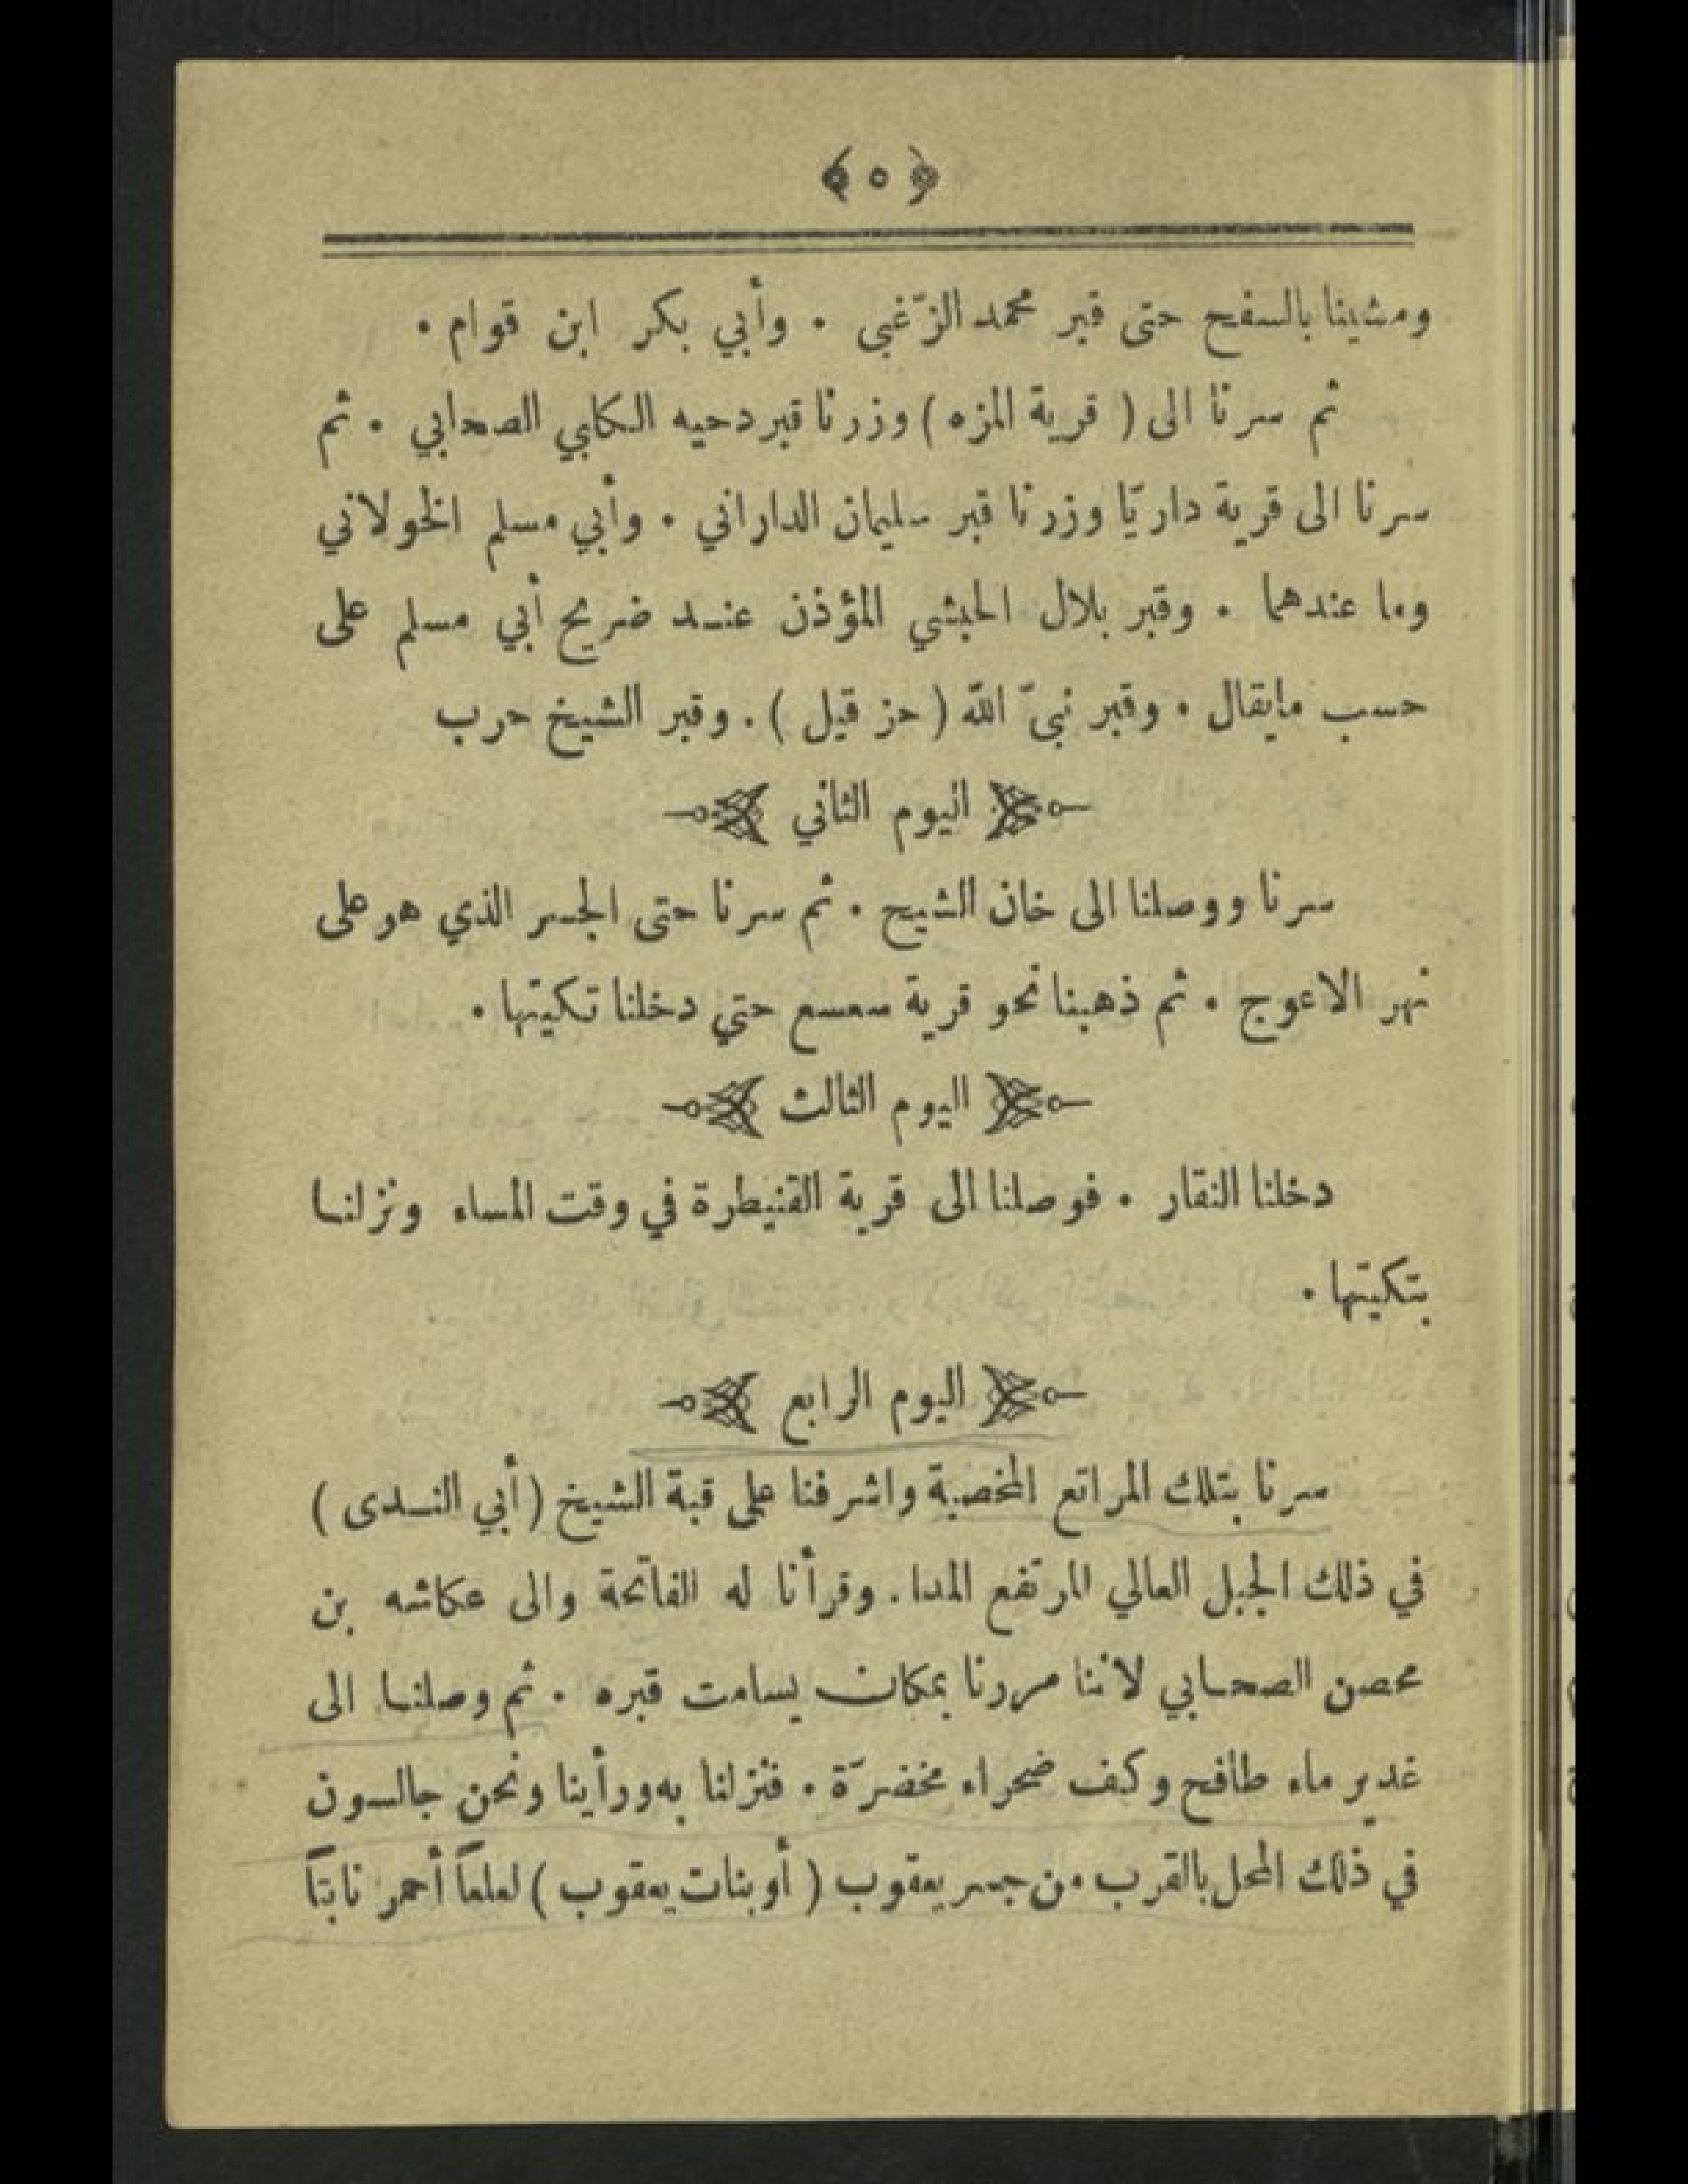 ﴿ ٥ ﴾
ومشينا بالسفح حتى قبر محمد الزّغبي . وأبي بكر ابن قوام .
ثم سرنا الى ( قرية المزه ) وزرنا قبر دحيه الكلبي الصحابي . ثم
سرنا الى قرية داريّا وزرنا قبر سليمان الداراني . وأبي مسلم الخولاني
وما عندهما . وقبر بلال الحبشي المؤذن عنـد ضريح أبي مسلم على
حسب مايقال . وقبر نبيّ الله ( حز قيل ) . وقبر الشيخ حرب
اليوم الثاني
سرنا ووصلنا الى خان الشيح . ثم سرنا حتى الجسر الذي هو على
نهر الاعوج . ثم ذهبنا نحو قرية سعسع حتي دخلنا تكيتها .
اليوم الثالث
دخلنا النقار . فوصلنا الى قرية القنيطرة في وقت المساء ونزلنـا
بتكيتها .
اليوم الرابع
سرنا بتلك المراتع المخصبة واشرفنا على قبة الشيخ ( أبي النـدى )
في ذلك الجبل العالي المرتفع المدا . وقرأنا له الفاتحة والى عكاشه بن
محصن الصحـابي لاننا مررنا بمكان يسامت قبره . ثم وصلنـا الى
غدير ماء طافح وكنف صحراء مخضرّة . فنزلنا به ورأينا ونحن جالسون
في ذلك المحل بالقرب من جسر يعقوب ( أو بنات يعقوب ) لعلعاً أحمر نابتاً